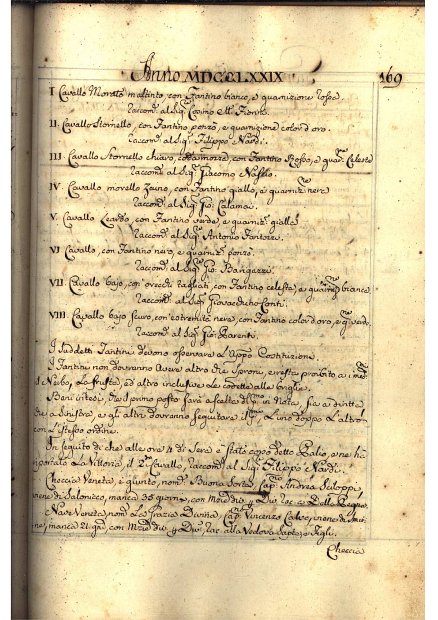 Anno MDCCLXXIX
169
I Cavallo Morello maltinto, con Fantino bianco, e guarnizione rossa.
raccom. al Sig.
II. Cavallo Stornello, con Fantino ponzò, e guarnizione color d'oro.
raccom. al Sig. Filippo Nardi.
III. Cavallo Stornello chiaro, con Fantino Rosso, e guar. Celeste
raccom. al Sig. Giacomo
IV. Cavallo morello Zaino, con Fantino giallo, e guarniz. nera
raccom. al Sig. Gio: Calamai.
V. Cavallo Leardo, con Fantino verde, e guarniz. gialla
raccom. al Sig. Antonio Fantozzi.
VI Cavallo, con Fantino nero, e guarniz. ponzò.
raccom. al Sig. Gio:
VII. Cavallo bajo, con orecchi tagliati, con Fantino celeste, e guarniz. bianca
raccom. al Sig. Conti.
VIII. Cavallo bajo scuro, con estremità nere, con Fantino color d'oro, e verde.
raccom. al Sig. Gio: Parenti.
I suddetti Fantini devono osservare l'
I Fantini non dovranno avere altro che Sproni, e resta proibito a i med.
il Nerbo, La frusta, ed altro inclusive le alle briglie.
primo posto sarà a scelta di in Nota, sia a diritta
che a sinistra, e gli altri dovranno seguitare L'uno doppo L'altro
con L'istesso ordine.
In seguito di che alle ore 4 di Sera è stato corso detto Palio, e ne ha
riportato La Vittoria, il 2. Cavallo, raccom. al Sig. Filippo Nardi.
Checcia Veneta, è giunta, nom. Buona Sorte, Cap. Andrea
viene di Salonicco, manca 35 giorni, con
Nave Veneta, nom. La Grazia Divina, Cap. Vincenzo viene di
manca 21 gior. con alla Vedova e Figli.
Checcia